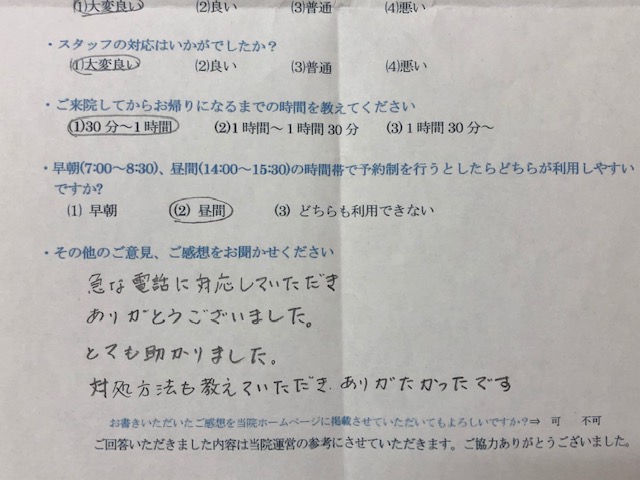 (1)大変良い (2)良い (3)普通 (4)悪い
・スタッフの対応はいかがでしたか?
(1)大変良い (2)良い (3)普通 (4)悪い
・ご来院してからお帰りになるまでの時間を教えてください
(1)30分〜1時間 (2)1時間〜1時間30分 (3)1時間30分〜
・早朝(7:00〜8:30)、昼間(14:00〜15:30)の時間帯で予約制を行うとしたらどちらが利用しやすい
ですか?
(1) 早朝 (2) 昼間 (3) どちらも利用できない
・その他のご意見、ご感想をお聞かせください
急な電話に対応していただき
ありがとうございました。
とても助かりました。
対処方法も教えていただき、ありがたかったです
お書きいただいたご感想を当院ホームページに掲載させていただいてもよろしいですか?⇒ 可 不可
ご回答いただきました内容は当院運営の参考にさせていただきます。ご協力ありがとうございました。